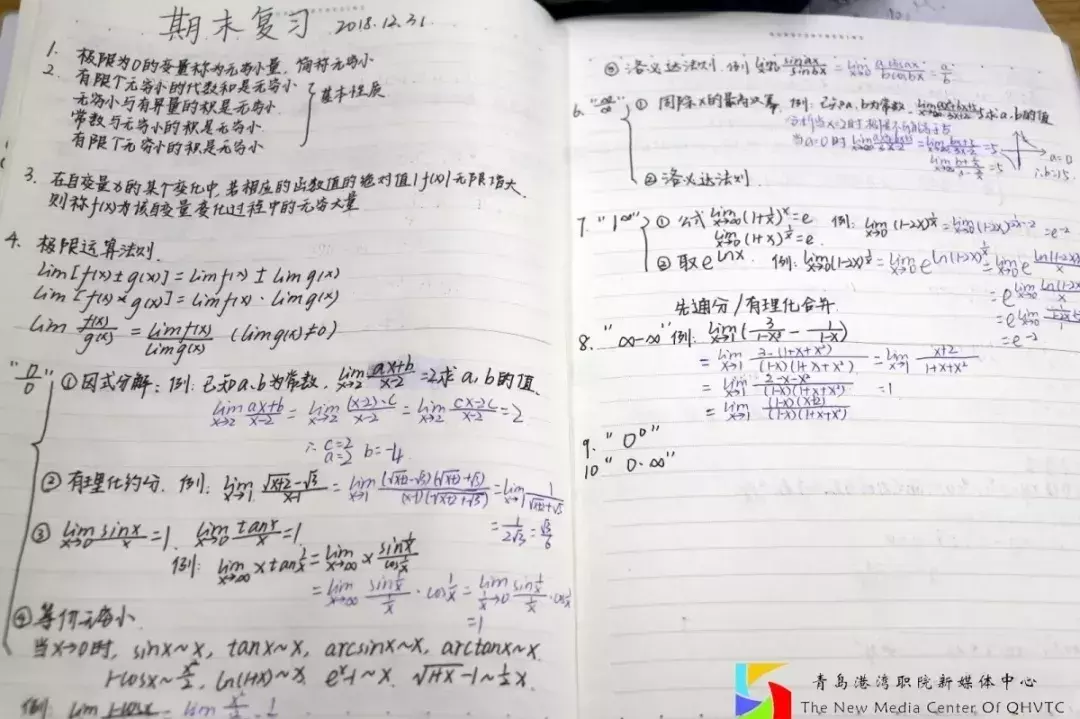 期末复习 2018.12.31
1. 极限为0的变量称为无穷小量,简称无穷小
2. 有限个无穷小的代数和是无穷小
无穷小与有界量的积是无穷小
常数与无穷小的积是无穷小
有限个无穷小的积是无穷小
基本性质
3. 在自变量x的某个变化中,若相应的函数值的绝对值|f(x)|无限增大
则称f(x)为该自变量变化过程中的无穷大量
4. 极限运算法则
lim[f(x)±g(x)]=limf(x)±limg(x)
lim[f(x)×g(x)]=limf(x)·limg(x)
lim f(x)/g(x) = limf(x)/limg(x) (limg(x)≠0)
"0/0" ①因式分解:例:已知a、b为常数,lim x→2 (ax+b)/(x-2)=2求a、b的值
lim x→2 (ax+b)/(x-2) = lim x→2 (x-2)·c/(x-2) = lim x→2 (cx-2c)/(x-2) = 2
∴ c=2
a=2 b=-4
②有理化约分. 例: lim x→1 (√x+2-√3)/(x-1) = lim x→1 (√x+2-√3)(√x+2+√3)/(x-1)(√x+2+√3) = lim x→1 1/(√x+2+√3)
= 1/2√3 = √3/6
③ lim x→0 sinx/x=1、lim x→0 tanx/x=1
例: lim x→∞ x tan 1/x = lim x→∞ x sin 1/x / cos 1/x
= lim x→∞ sin 1/x / 1/x · cos 1/x = lim 1/x→0 sin 1/x / 1/x · cos 1/x
=1
④等价无穷小
当x→0时, sinx~x, tanx~x, arcsinx~x, arctanx~x
1-cosx~x²/2, ln(1+x)~x e^x-1~x. √1+x-1~1/2x.
例: lim 1-cosx = lim
⑤洛必达法则. 例 lim x→0 sinax/sinbx = lim x→0 acosax/bcosbx = a/b
6. "∞/∞" ①同除x的最高次幂. 例: 已知a、b为常数, =5求a、b的值
当a=0时 =5
a=0
∴b=15
②洛必达法则
7. "1^∞" ①公式 lim x→∞ (1+1/x)^x=e 例: lim x→0 (1-2x)^1/x = lim x→0 (1-2x) = e^-2
lim x→0 (1+x)^1/x=e
②取e^lnx. 例: lim x→0 (1-2x)^1/x = lim x→0 e^ln(1-2x)^1/x = lim x→0 e^ln(1-2x)/x
= e^lim x→0 ln(1-2x)/x
= e^lim x→0
= e^-2
先通分/有理化合并
8. "∞-∞" 例: lim x→1 (3/(1-x³) - 1/(1-x))
= lim x→1 3-(1+x+x²)/(1-x)(1+x+x²) = lim x→1 (x+2)/(1+x+x²)
= lim x→1 (2-x-x²)/(1-x)(1+x+x²) =1
= lim x→1 (1-x)(x+2)/(1-x)(1+x+x²)
9. "0^0"
10 "0·∞"
青岛港湾职院新媒体中心
The New Media Center Of QHVTC